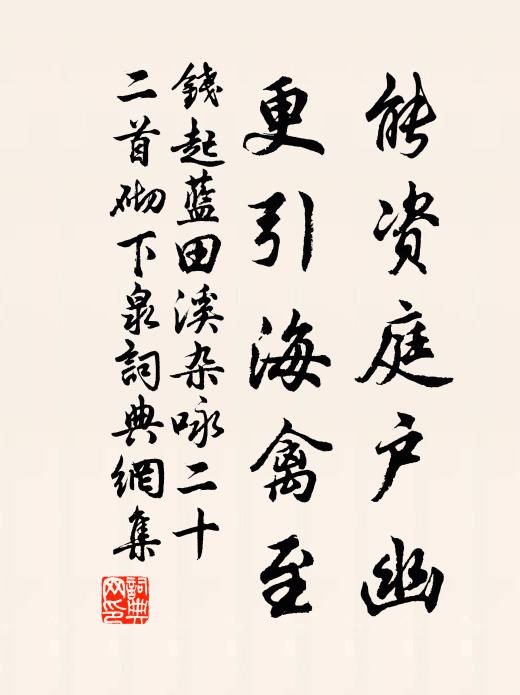 能资庭户幽
更引海禽至
錢起藍田溪杂咏二十
二首砌下泉詞典網集
詞典
网印